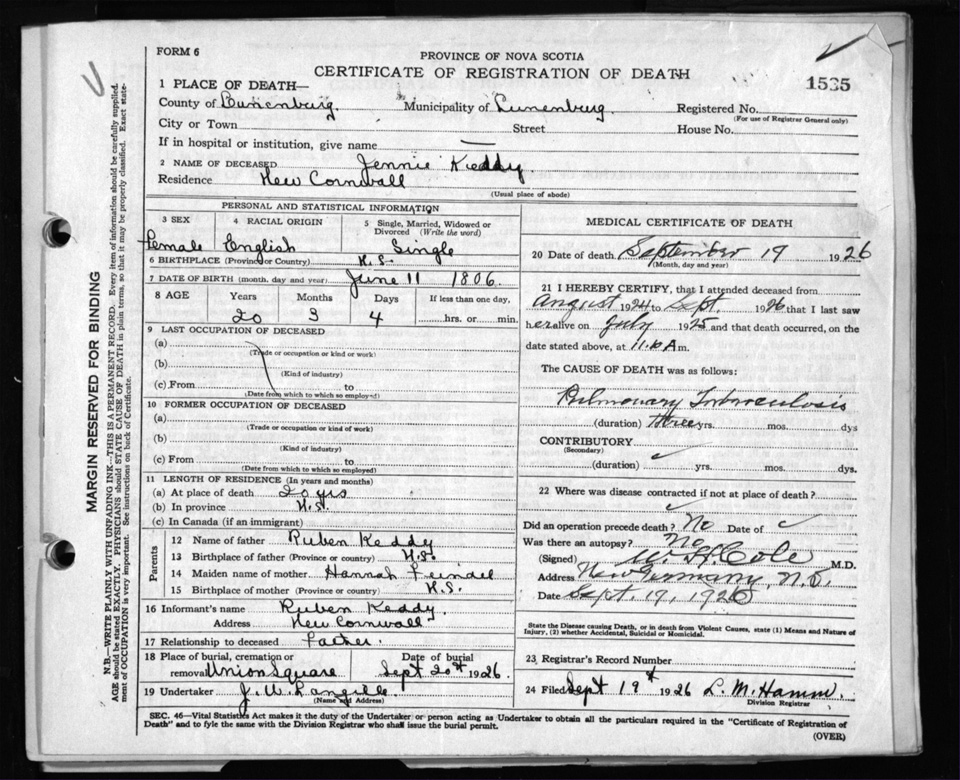 FORM 6
PROVINCE OF NOVA SCOTIA
CERTIFICATE OF REGISTRATION OF DEATH
1535
1 PLACE OF DEATH—
County of Lunenburg. Municipality of Lunenburg. Registered No.
(For use of Registrar General only)
City or Town Street House No.
If in hospital or institution, give name —
2 NAME OF DECEASED Jennie Keddy.
Residence New Cornwall
(Usual place of abode)
PERSONAL AND STATISTICAL INFORMATION
3 SEX 4 RACIAL ORIGIN 5 Single, Married, Widowed or Divorced (Write the word)
Female English Single
6 BIRTHPLACE (Province or Country) N.S.
7 DATE OF BIRTH (month, day and year) June 11 1806.
8 AGE Years Months Days If less than one day,
20 3 4 hrs. or min.
9 LAST OCCUPATION OF DECEASED
(a)
(Trade or occupation or kind or work)
(b)
(Kind of industry)
(c) From to
(Date from which to which employed)
10 FORMER OCCUPATION OF DECEASED
(a)
(Trade or occupation or kind of work)
(b)
(Kind of industry)
(c) From to
(Date from which to which so employed)
11 LENGTH OF RESIDENCE (In years and months)
(a) At place of death 20 yrs
(b) In province N.S.
(c) In Canada (if an immigrant)
Parents
12 Name of father Ruben Keddy
13 Birthplace of father (Province or country) N.S.
14 Maiden name of mother Hannah
15 Birthplace of mother (Province or country) N.S.
16 Informant's name Ruben Keddy.
Address New Cornwall
17 Relationship to deceased Father.
18 Place of burial, cremation or removal Union Square Date of burial Sept 20th 1926.
19 Undertaker J. W. Langille
(Name and Address)
MEDICAL CERTIFICATE OF DEATH
20 Date of death September 19 1926
(Month, day and year)
21 I HEREBY CERTIFY, that I attended deceased from
August 1924 to Sept. 1926 that I last saw
her alive on July 1925 and that death occurred, on the
date stated above, at 11. A m.
The CAUSE OF DEATH was as follows:
Pulmonary Tuberculosis
(duration) three yrs. mos. dys
CONTRIBUTORY
(Secondary)
(duration) yrs. mos. dys.
22 Where was disease contracted if not at place of death?
Did an operation precede death? No Date of
Was there an autopsy? No
(Signed) W. H. Cole M.D.
Address New Germany N.S.
Date Sept. 19, 1926
State the Disease causing Death, or in death from Violent Causes, state (1) Means and Nature of
Injury, (2) whether Accidental, Suicidal or Homicidal.
23 Registrar's Record Number
24 Filed Sept 19th 1926 L. M. Hamm.
Division Registrar
SEC. 46—Vital Statistics Act makes it the duty of the Undertaker or person acting as Undertaker to obtain all the particulars required in the "Certificate of Registration of
Death" and to fyle the same with the Division Registrar who shall issue the burial permit.
(OVER)
MARGIN RESERVED FOR BINDING
N.B.—WRITE PLAINLY WITH UNFADING INK—THIS IS A PERMANENT RECORD. Every item of information should be carefully supplied.
AGE should be stated EXACTLY. PHYSICIANS should STATE CAUSE OF DEATH in plain terms, so that it may be properly classified. Exact state-
ment of OCCUPATION is very important. See instructions on back of Certificate.